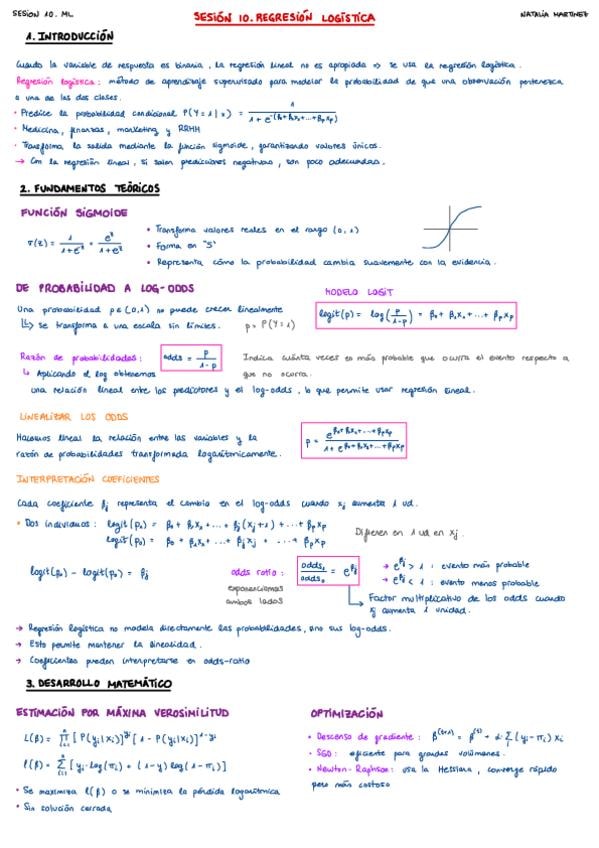 SESIÓN 10. ML
SESIÓN 10. REGRESIÓN LOGÍSTICA
NATALIA MARTÍNEZ
1. INTRODUCCIÓN
Cuando la variable de respuesta es binaria, la regresión lineal no es apropiada ⇒ se usa la regresión logística.
Regresión logística: método de aprendizaje supervisado para modelar la probabilidad de que una observación pertenezca
a una de las dos clases.
• Predice la probabilidad condicional P(Y=1|x) = 1 / (1 + e^-(β₀+β₁x₁+...+βₚxₚ))
• Medicina, finanzas, marketing y RRHH
• Transforma la salida mediante la función sigmoide, garantizando valores únicos.
→ Con la regresión lineal, si salen predicciones negativas, son poco adecuadas.
2. FUNDAMENTOS TEÓRICOS
FUNCIÓN SIGMOIDE
σ(z) = 1 / (1+e^-z) = e^z / (1+e^z)
• Transforma valores reales en el rango (0,1)
• Forma en "S"
• Representa cómo la probabilidad cambia suavemente con la evidencia.
DE PROBABILIDAD A LOG-ODDS
MODELO LOGIT
Una probabilidad p∈(0,1) no puede crecer linealmente
↳ se transforma a una escala sin límites. p = P(Y=1)
logit(p) = log(p / (1-p)) = β₀ + β₁x₁ + ... + βₚxₚ
Razón de probabilidades: odds = p / (1-p) Indica cuánta veces es más probable que ocurra el evento respecto a
que no ocurra.
↳ Aplicando el log obtenemos
una relación lineal entre los predictores y el log-odds, lo que permite usar regresión lineal.
LINEALIZAR LOS ODDS
Hacemos lineal la relación entre las variables y la
razón de probabilidades transformada logarítmicamente.
p = e^(β₀+β₁x₁+...+βₚxₚ) / (1 + e^(β₀+β₁x₁+...+βₚxₚ))
INTERPRETACIÓN COEFICIENTES
Cada coeficiente βj representa el cambio en el log-odds cuando xj aumenta 1 ud.
• Dos individuos: logit(p₁) = β₀ + β₁x₁ + ... + βj(xj+1) + ... + βₚxₚ
logit(p₀) = β₀ + β₁x₁ + ... + βjxj + ... + βₚxₚ
Difieren en 1 ud en xj.
logit(p₁) - logit(p₀) = βj
odds ratio: odds₁ / odds₀ = e^βj
exponenciamos
ambos lados
→ e^βj > 1 : evento más probable
→ e^βj < 1 : evento menos probable
Factor multiplicativo de los odds cuando
xj aumenta 1 unidad.
→ Regresión logística no modela directamente las probabilidades, sino sus log-odds.
→ Esto permite mantener la linealidad.
→ Coeficientes pueden interpretarse en odds-ratio
3. DESARROLLO MATEMÁTICO
ESTIMACIÓN POR MÁXIMA VEROSIMILITUD
L(β) = ∏ᵢ₌₁ⁿ [P(yᵢ|xᵢ)]^yᵢ [1 - P(yᵢ|xᵢ)]^(1-yᵢ)
ℓ(β) = Σᵢ₌₁ⁿ [yᵢ·log(πᵢ) + (1-y) log(1-πᵢ)]
• Se maximiza ℓ(β) o se minimiza la pérdida logarítmica
• Sin solución cerrada
OPTIMIZACIÓN
• Descenso de gradiente: β^(t+1) = β^(t) + α·Σ(yᵢ-πᵢ)xᵢ
• SGD: eficiente para grandes volúmenes.
• Newton-Raphson: usa la Hessiana, converge rápido
pero más costoso